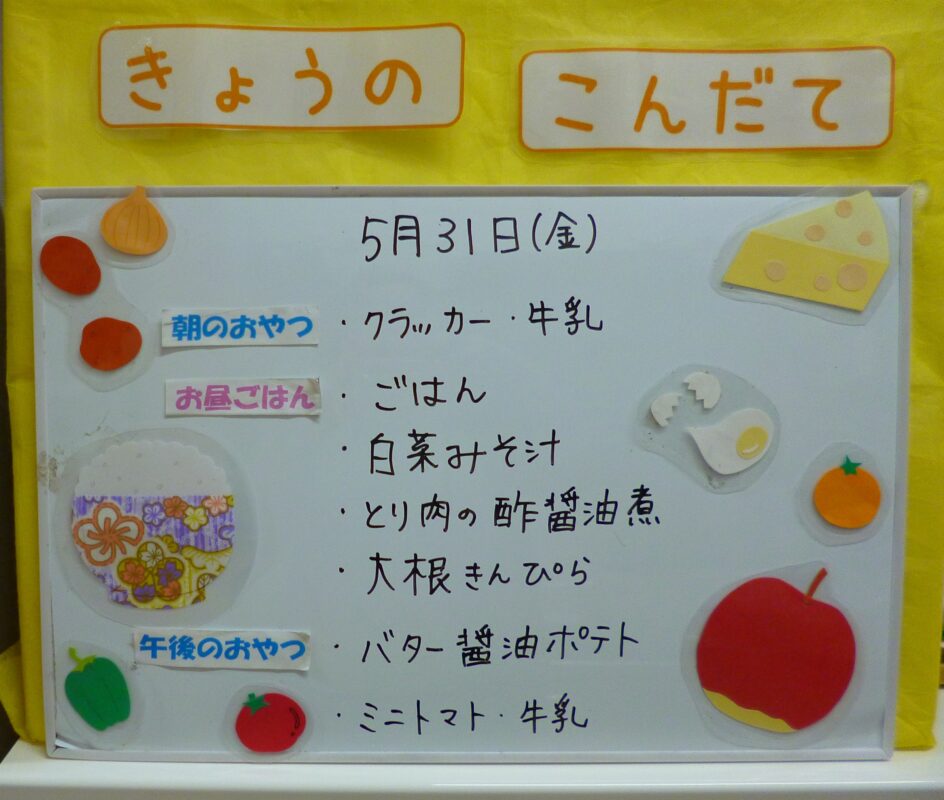 きょうの こんだて
5月31日(金)
朝のおやつ ・クラッカー・牛乳
お昼ごはん ・ごはん
・白菜みそ汁
・とり肉の酢醤油煮
・大根きんぴら
午後のおやつ ・バター醤油ポテト
・ミニトマト・牛乳